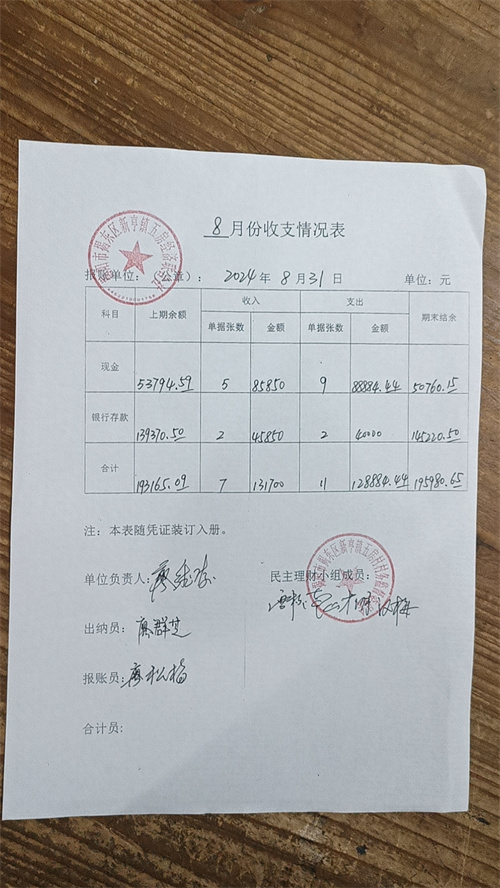 8月份收支情况表
报账单位：（公章）： 2024年8月31日 单位：元
科目 上期余额 收入 支出 期末结余
单据张数 金额 单据张数 金额
现金 53794.59 5 85850 9 88884.44 50760.15
银行存款 139370.50 2 45850 2 40000 145220.50
合计 193165.09 7 131700 11 128884.44 195980.65
注：本表随凭证装订入册。
单位负责人： 民主理财小组成员：
出纳员：廖群芝
报账员：廖松梅
合计员：